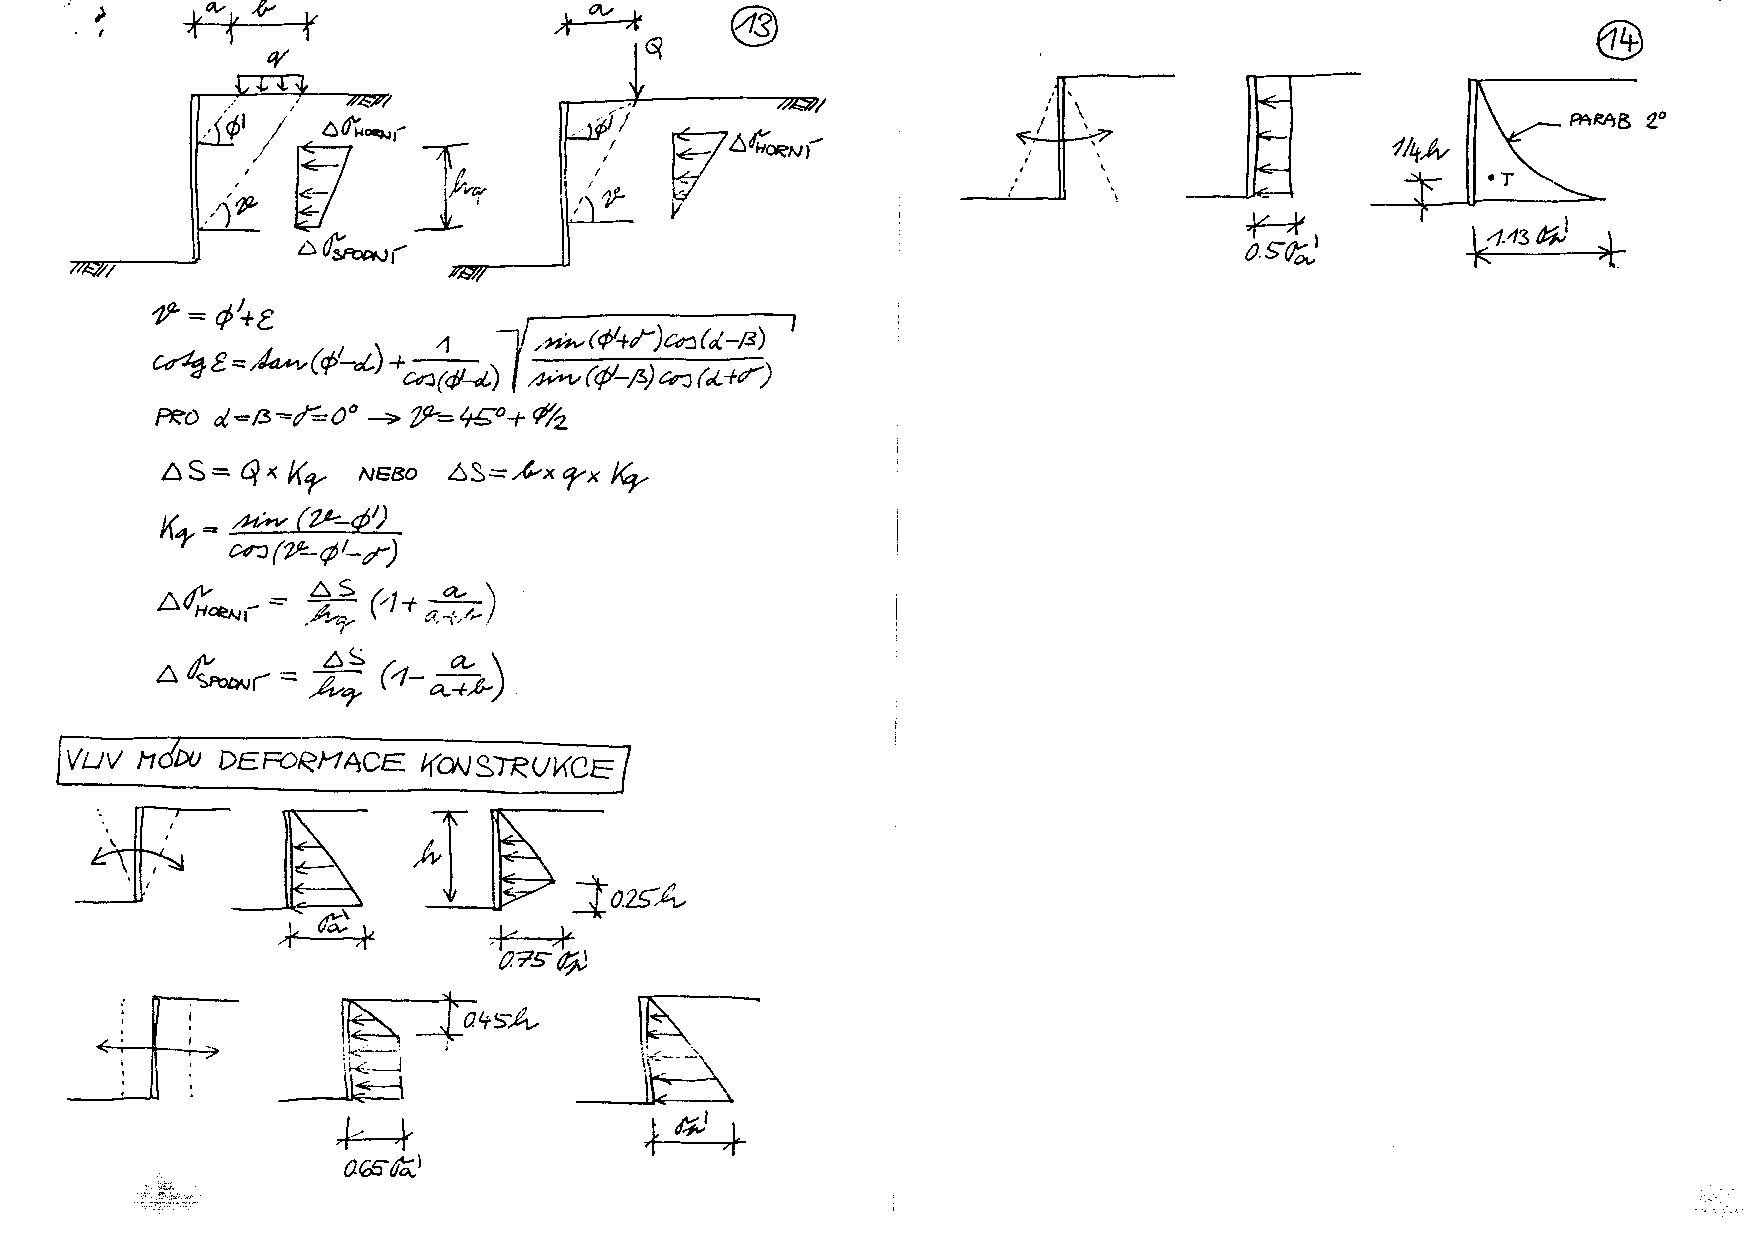 13
a b
q
φ'
ϑ
Δσ HORNÍ
hq
Δσ SPODNÍ
a
Q
φ'
ϑ
Δσ HORNÍ
ϑ = φ'+ε
cotg ε = tan(φ'-α) + 1/cos(φ'-α) √(sin(φ'+δ)cos(α-β)/sin(φ'-β)cos(α+δ))
PRO α=β=δ=0° → ϑ=45°+φ'/2
ΔS = Q × Kq NEBO ΔS = b × q × Kq
Kq = sin(ϑ-φ')/cos(ϑ-φ'-δ)
Δσ HORNÍ = ΔS/hq (1 + a/(a+b))
Δσ SPODNÍ = ΔS/hq (1 - a/(a+b))
VLIV MÓDU DEFORMACE KONSTRUKCE
σa'
h
0.25h
0.75 σp'
0.45h
0.65 σa'
σp'
14
0.5 σa'
PARAB 2°
1/4h
T
1.13 σp'